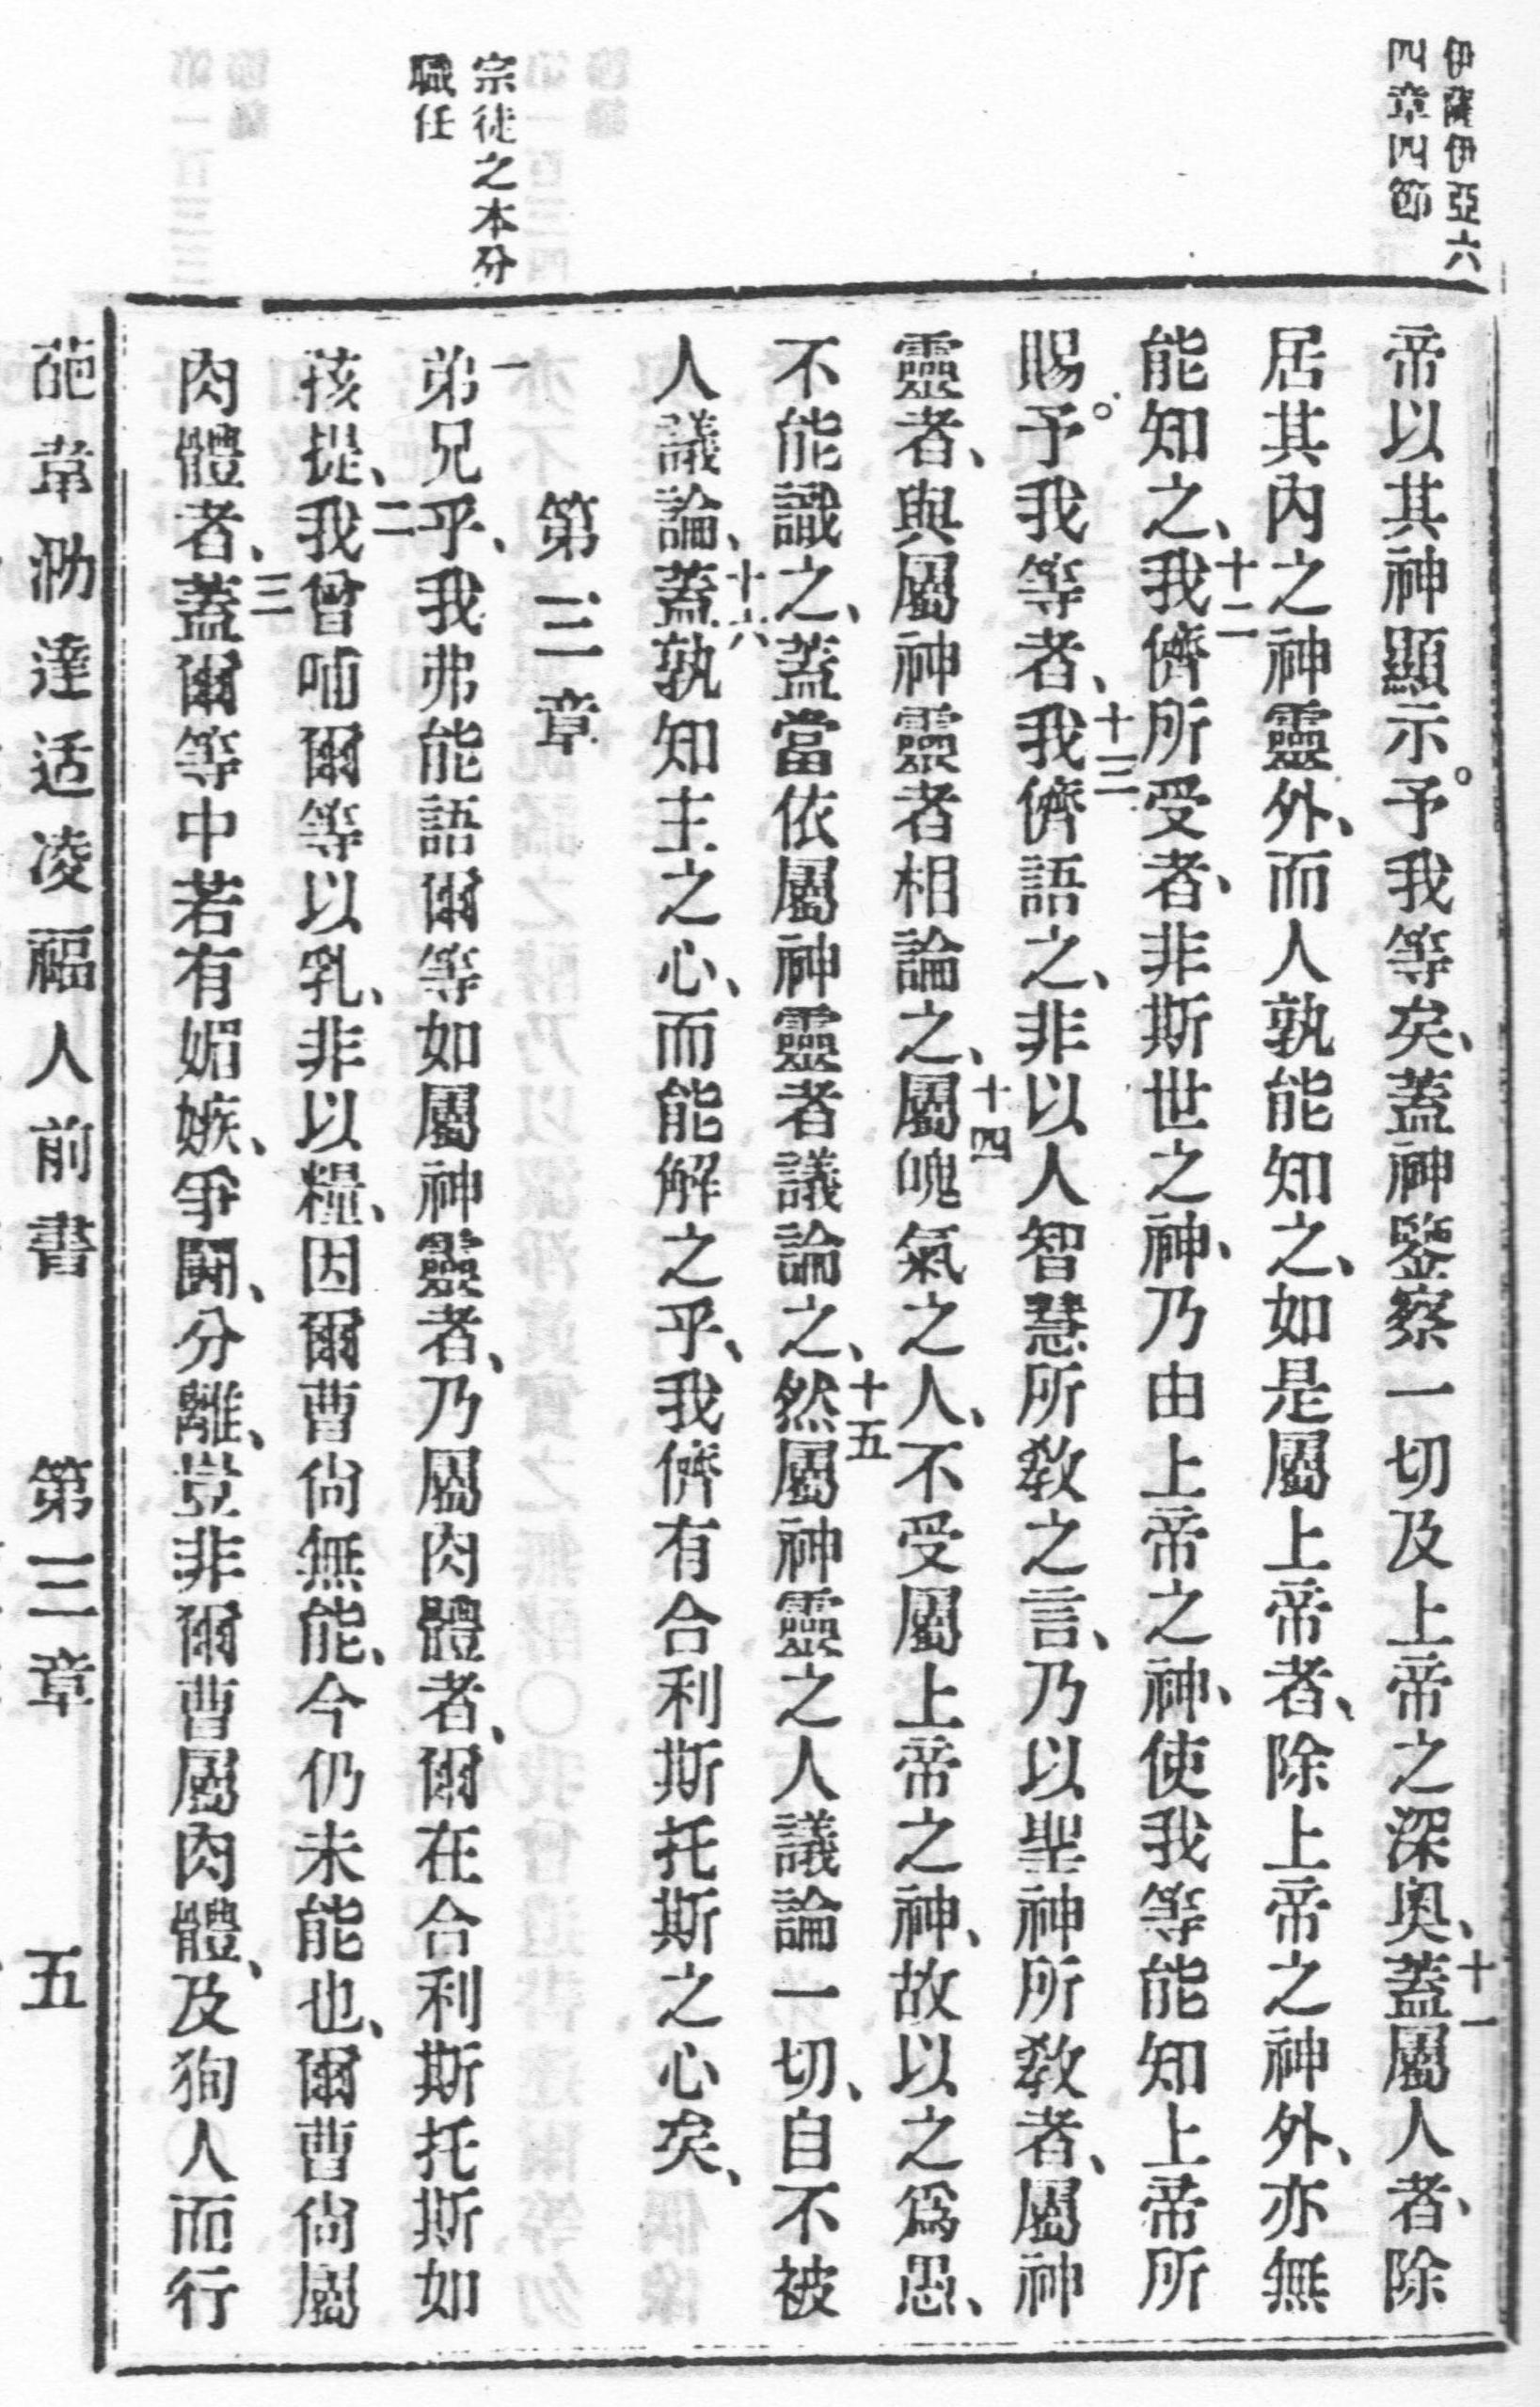 伊薩伊亞六
四章四節
帝以其神顯示。予我等矣、蓋神鑒察一切及上帝之深奧、十一蓋屬人者、除
居其內之神靈外、而人孰能知之、如是屬上帝者、除上帝之神外、亦無
能知之、十二我儕所受者、非斯世之神、乃由上帝之神、使我等能知上帝所
賜。予我等者、十三我儕語之、非以人智慧所敎之言、乃以聖神所敎者、屬神
靈者、與屬神靈者相論之、十四屬魄氣之人、不受屬上帝之神、故以之爲愚、
不能識之、蓋當依屬神靈者議論之、十五然屬神靈之人議論一切、自不被
人議論、十六蓋孰知主之心、而能解之乎、我儕有合利斯托斯之心矣、
第三章
宗徒之本分
職任
一弟兄乎、我弗能語爾等如屬神靈者、乃屬肉體者、爾在合利斯托斯如
孩提、二我曾哺爾等以乳、非以糧、因爾曹尙無能、今仍未能也、爾曹尙屬
肉體者、三蓋爾等中若有媢嫉、爭鬭、分離、豈非爾曹屬肉體、及狥人而行
葩韋泐達适凌福人前書　第三章　五